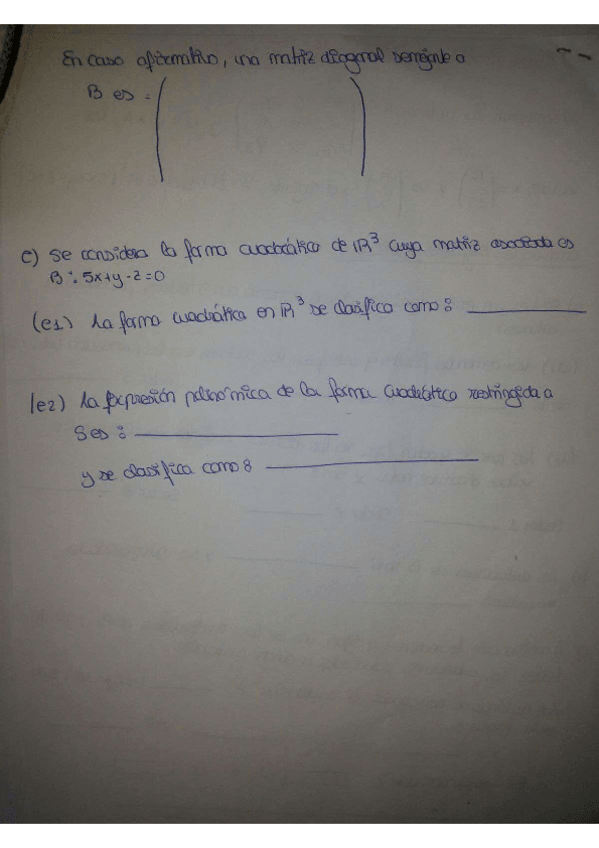 En caso afirmativo, una matriz diagonal semejante a
B es =
c) Se considera la forma cuadrática de IR³ cuya matriz asociada es
B : 5x+y-z=0
(e1) La forma cuadrática en IR³ se clasifica como : ________
(e2) La expresión polinómica de la forma cuadrática restringida a
S es : ________
y se clasifica como : ________